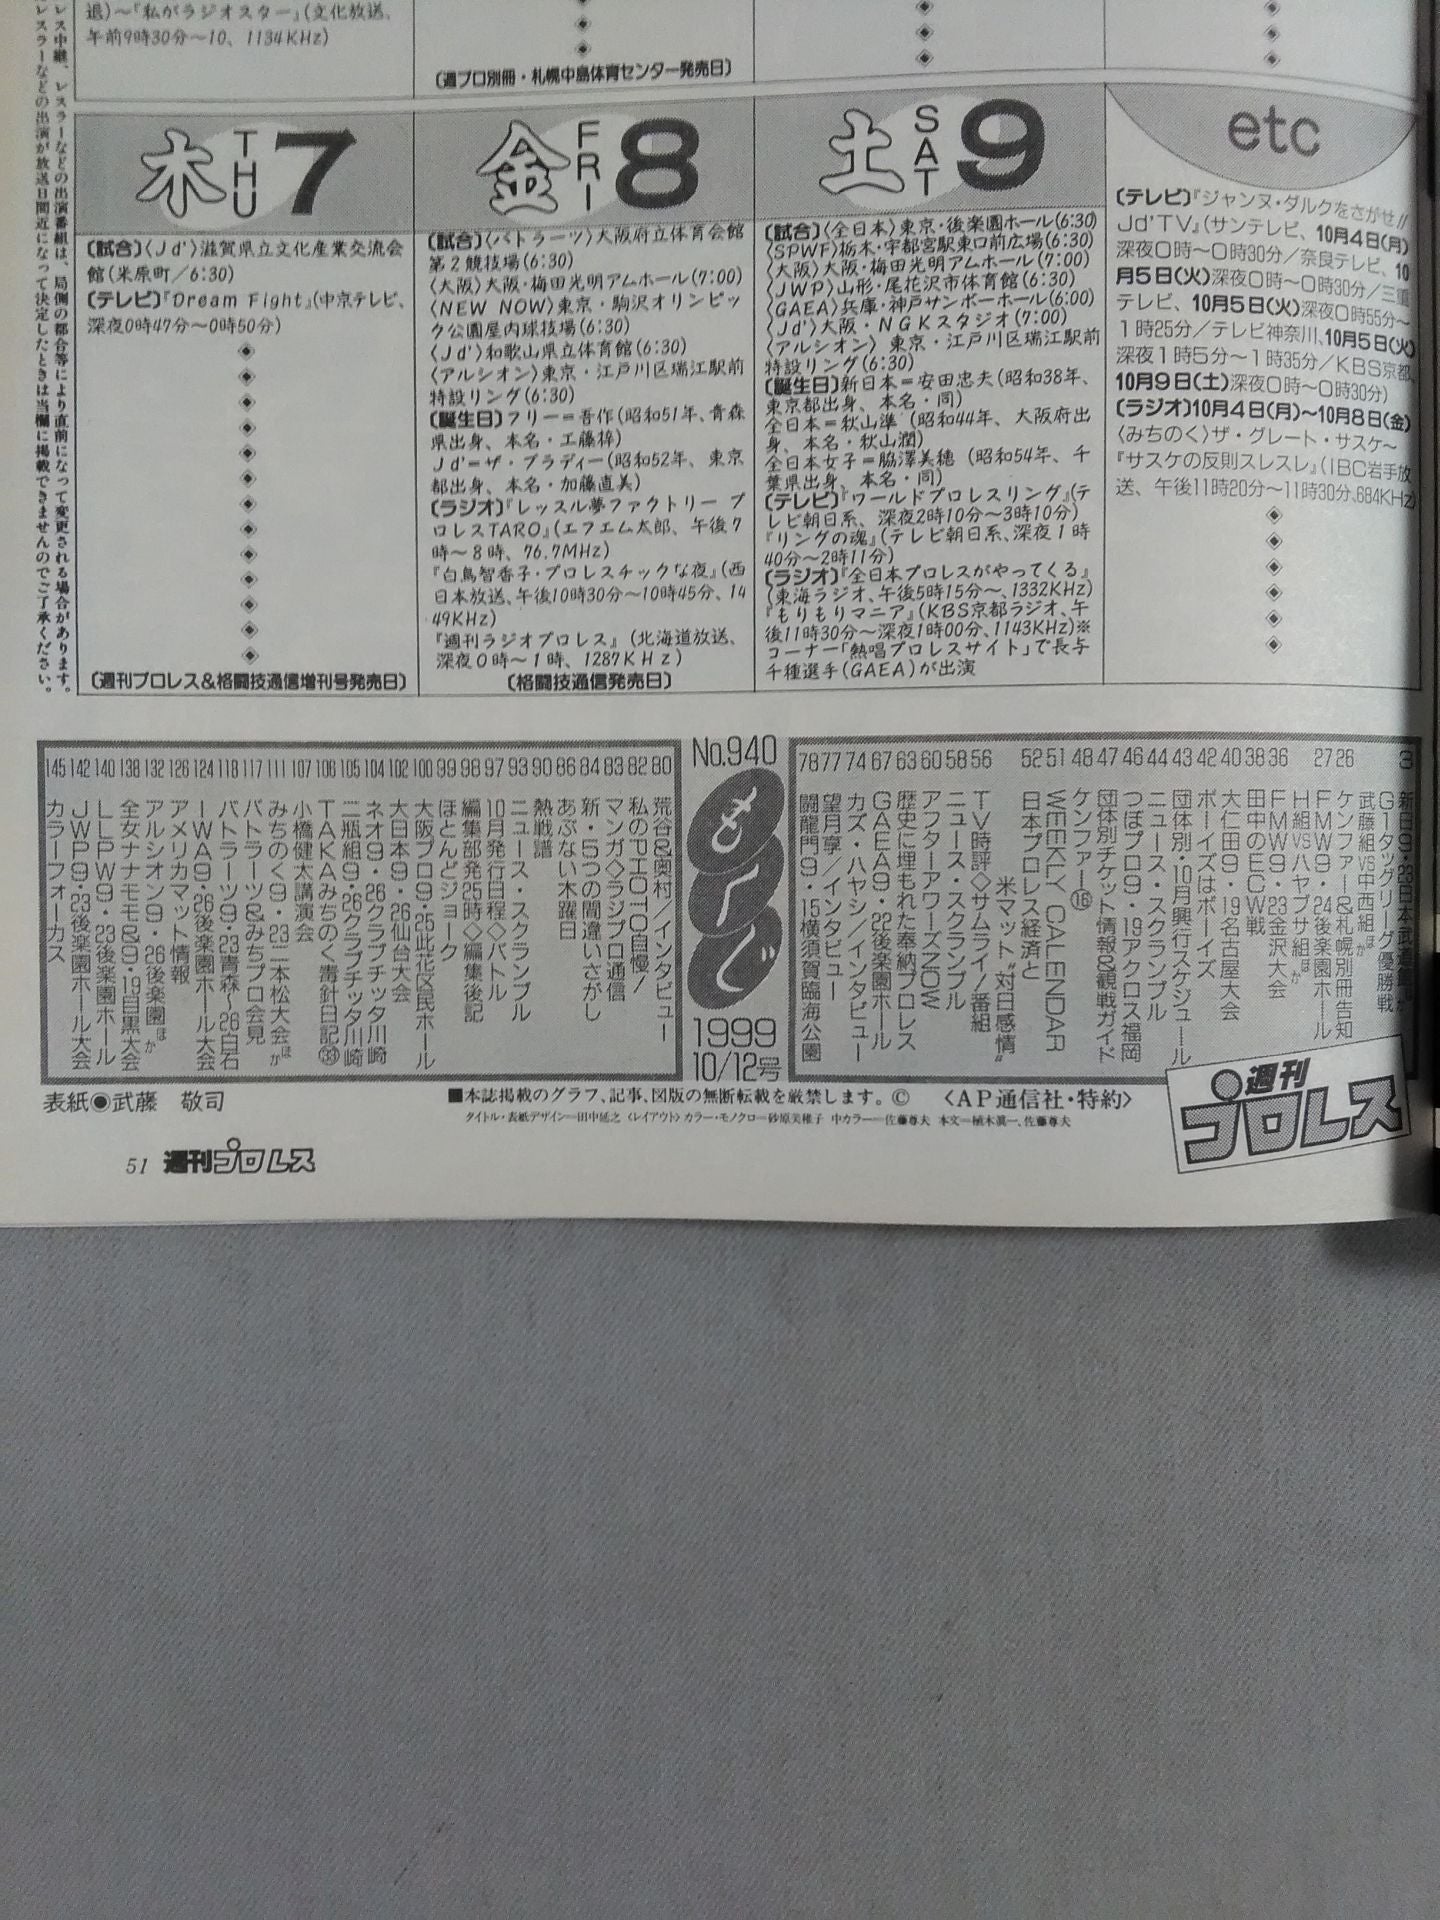 退)〜『私がラジオスター』(文化放送、
午前9時30分〜10、1134KHz)
(週プロ別冊・札幌中島体育センター発売日)
木 THU 7
(試合)〈Jd'〉滋賀県立文化産業交流会
館(米原町/6:30)
(テレビ)『Dream Fight』(中京テレビ、
深夜0時47分〜0時50分)
(週刊プロレス&格闘技通信増刊号発売日)
金 FRI 8
(試合)〈バトラーツ〉大阪府立体育会館
第2競技場(6:30)
〈大阪〉大阪・梅田光明アムホール(7:00)
〈NEW NOW〉東京・駒沢オリンピッ
ク公園屋内球技場(6:30)
〈Jd'〉和歌山県立体育館(6:30)
〈アルシオン〉東京・江戸川区瑞江駅前
特設リング(6:30)
(誕生日)フリー=吾作(昭和51年、青森
県出身、本名・工藤梓)
Jd'=ザ・ブラディー(昭和52年、東京
都出身、本名・加藤直美)
(ラジオ)『レッスル夢ファクトリー プ
ロレスTARO』(エフエム太郎、午後7
時〜8時、76.7MHz)
『白鳥智香子・プロレスチックな夜』(西
日本放送、午後10時30分〜10時45分、14
49KHz)
『週刊ラジオプロレス』(北海道放送、
深夜0時〜1時、1287KHz)
(格闘技通信発売日)
土 SAT 9
(試合)〈全日本〉東京・後楽園ホール(6:30)
〈SPWF〉栃木・宇都宮駅東口前広場(6:30)
〈大阪〉大阪・梅田光明アムホール(7:00)
〈JWP〉山形・尾花沢市体育館(6:30)
〈GAEA〉兵庫・神戸サンボーホール(6:00)
〈Jd'〉大阪・NGKスタジオ(7:00)
〈アルシオン〉東京・江戸川区瑞江駅前
特設リング(6:30)
(誕生日)新日本=安田忠夫(昭和38年、
東京都出身、本名・同)
全日本=秋山準(昭和44年、大阪府出
身、本名・秋山潤)
全日本女子=脇澤美穂(昭和54年、千
葉県出身、本名・同)
(テレビ)『ワールドプロレスリング』(テ
レビ朝日系、深夜2時10分〜3時10分)
『リングの魂』(テレビ朝日系、深夜1時
40分〜2時11分)
(ラジオ)『全日本プロレスがやってくる』
(東海ラジオ、午後5時15分〜、1332KHz)
『もりもりマニア』(KBS京都ラジオ、午
後11時30分〜深夜1時00分、1143KHz)※
コーナー「熱唱プロレスサイト」で長与
千種選手(GAEA)が出演
etc
(テレビ)『ジャンヌ・ダルクをさがせ!!
Jd'TV』(サンテレビ、10月4日(月)
深夜0時〜0時30分/奈良テレビ、10
月5日(火)深夜0時〜0時30分/三重
テレビ、10月5日(火)深夜0時55分〜
1時25分/テレビ神奈川、10月5日(火)
深夜1時5分〜1時35分/KBS京都、
10月9日(土)深夜0時〜0時30分)
(ラジオ)10月4日(月)〜10月8日(金)
〈みちのく〉ザ・グレート・サスケ〜
『サスケの反則スレスレ』(IBC岩手放
送、午後11時20分〜11時30分、684KHz)
レス中継、レスラーなどの出演番組は、局側の都合等により直前になって変更される場合があります。
レスラーなどの出演が放送日間近になって決定したときは当欄に掲載できませんのでご了承ください。
No.940
もくじ
1999
10/12号
3 新日9・23日本武道館ほか
G1タッグリーグ優勝戦
武藤組VS中西組ほか
26 ケンファー&札幌別冊告知
27 FMW9・24後楽園ホール
H組VSハヤブサ組ほか
36 FMW9・23金沢大会
38 田中のECW戦
40 大仁田9・19名古屋大会
42 ボーイズはボーイズ
43 団体別・10月興行スケジュール
44 ニュース・スクランブル
46 つぼプロ9・19アクロス福岡
47 団体別チケット情報&観戦ガイド
48 ケンファー⑯
51 WEEKLY CALENDAR
52 日本プロレス経済と
米マット“対日感情”
56 TV時評◇サムライ!番組
58 ニュース・スクランブル
60 アフターアワーズNOW
63 歴史に埋もれた奉納プロレス
67 GAEA9・22後楽園ホール
74 カズ・ハヤシ/インタビュー
77 望月享/インタビュー
78 闘龍門9・15横須賀臨海公園
80 荒谷&奥村/インタビュー
82 私のPHOTO自慢!
83 マンガ◇ラジプロ通信
84 新・5つの間違いさがし
86 あぶない木曜日
90 熱戦譜
93 ニュース・スクランブル
97 10月発行日程◇バトル
98 編集部発25時◇編集後記
99 ほとんどジョーク
100 大阪プロ9・25此花区民ホール
102 大日本9・26仙台大会
104 ネオ9・26クラブチッタ川崎
105 二瓶組9・26クラブチッタ川崎
106 TAKAみちのく毒針日記㉝
107 小橋健太講演会
111 みちのく9・23二本松大会ほか
117 バトラーツ&みちプロ会見
118 バトラーツ9・23青森〜26白石
124 IWA9・26後楽園ホール大会
126 アメリカマット情報
132 アルシオン9・26後楽園ほか
138 全女ナナモモ&9・19目黒大会
140 LLPW9・23後楽園ホール
142 JWP9・23後楽園ホール大会
145 カラーフォーカス
表紙◉武藤 敬司
■本誌掲載のグラフ、記事、図版の無断転載を厳禁します。© 〈AP通信社・特約〉
タイトル・表紙デザイン=田中延之〈レイアウト〉カラー・モノクロ=砂原美稚子 中カラー=佐藤尊夫 本文=植木眞一、佐藤尊夫
週刊プロレス
51 週刊プロレス